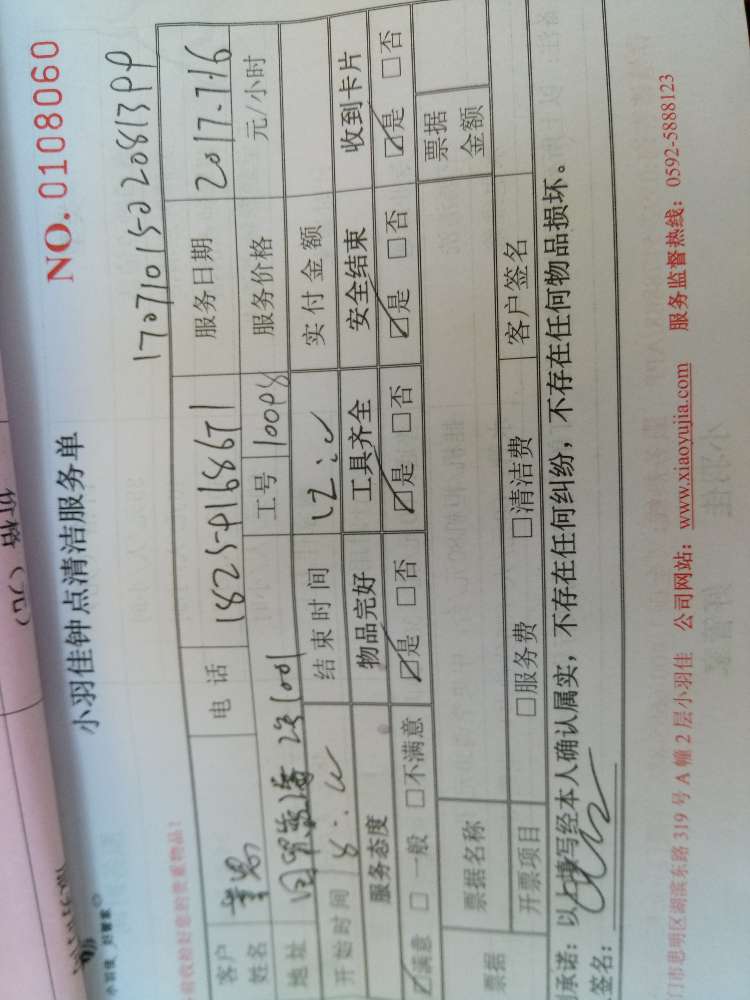 价格（元）
小羽佳 好管家
小羽佳钟点清洁服务单
NO. 0108060
收拾好您的贵重物品！
17071015220813
客户姓名
电话
服务日期 2017.7.16
地址
工号
服务价格 元/小时
开始时间 8:
结束时间 12:
实付金额
服务态度 物品完好 工具齐全 安全结束 收到卡片
☑满意 □一般 □不满意 ☑是 □否 ☑是 □否 ☑是 □否 ☑是 □否
票据 票据名称 票据金额
开票项目 □服务费 □清洁费 客户签名
承诺：以上填写经本人确认属实，不存在任何纠纷，不存在任何物品损坏。
签名：
门市思明区湖滨东路 319 号 A 幢 2 层小羽佳 公司网站：www.xiaoyujia.com 服务监督热线：0592-5888123